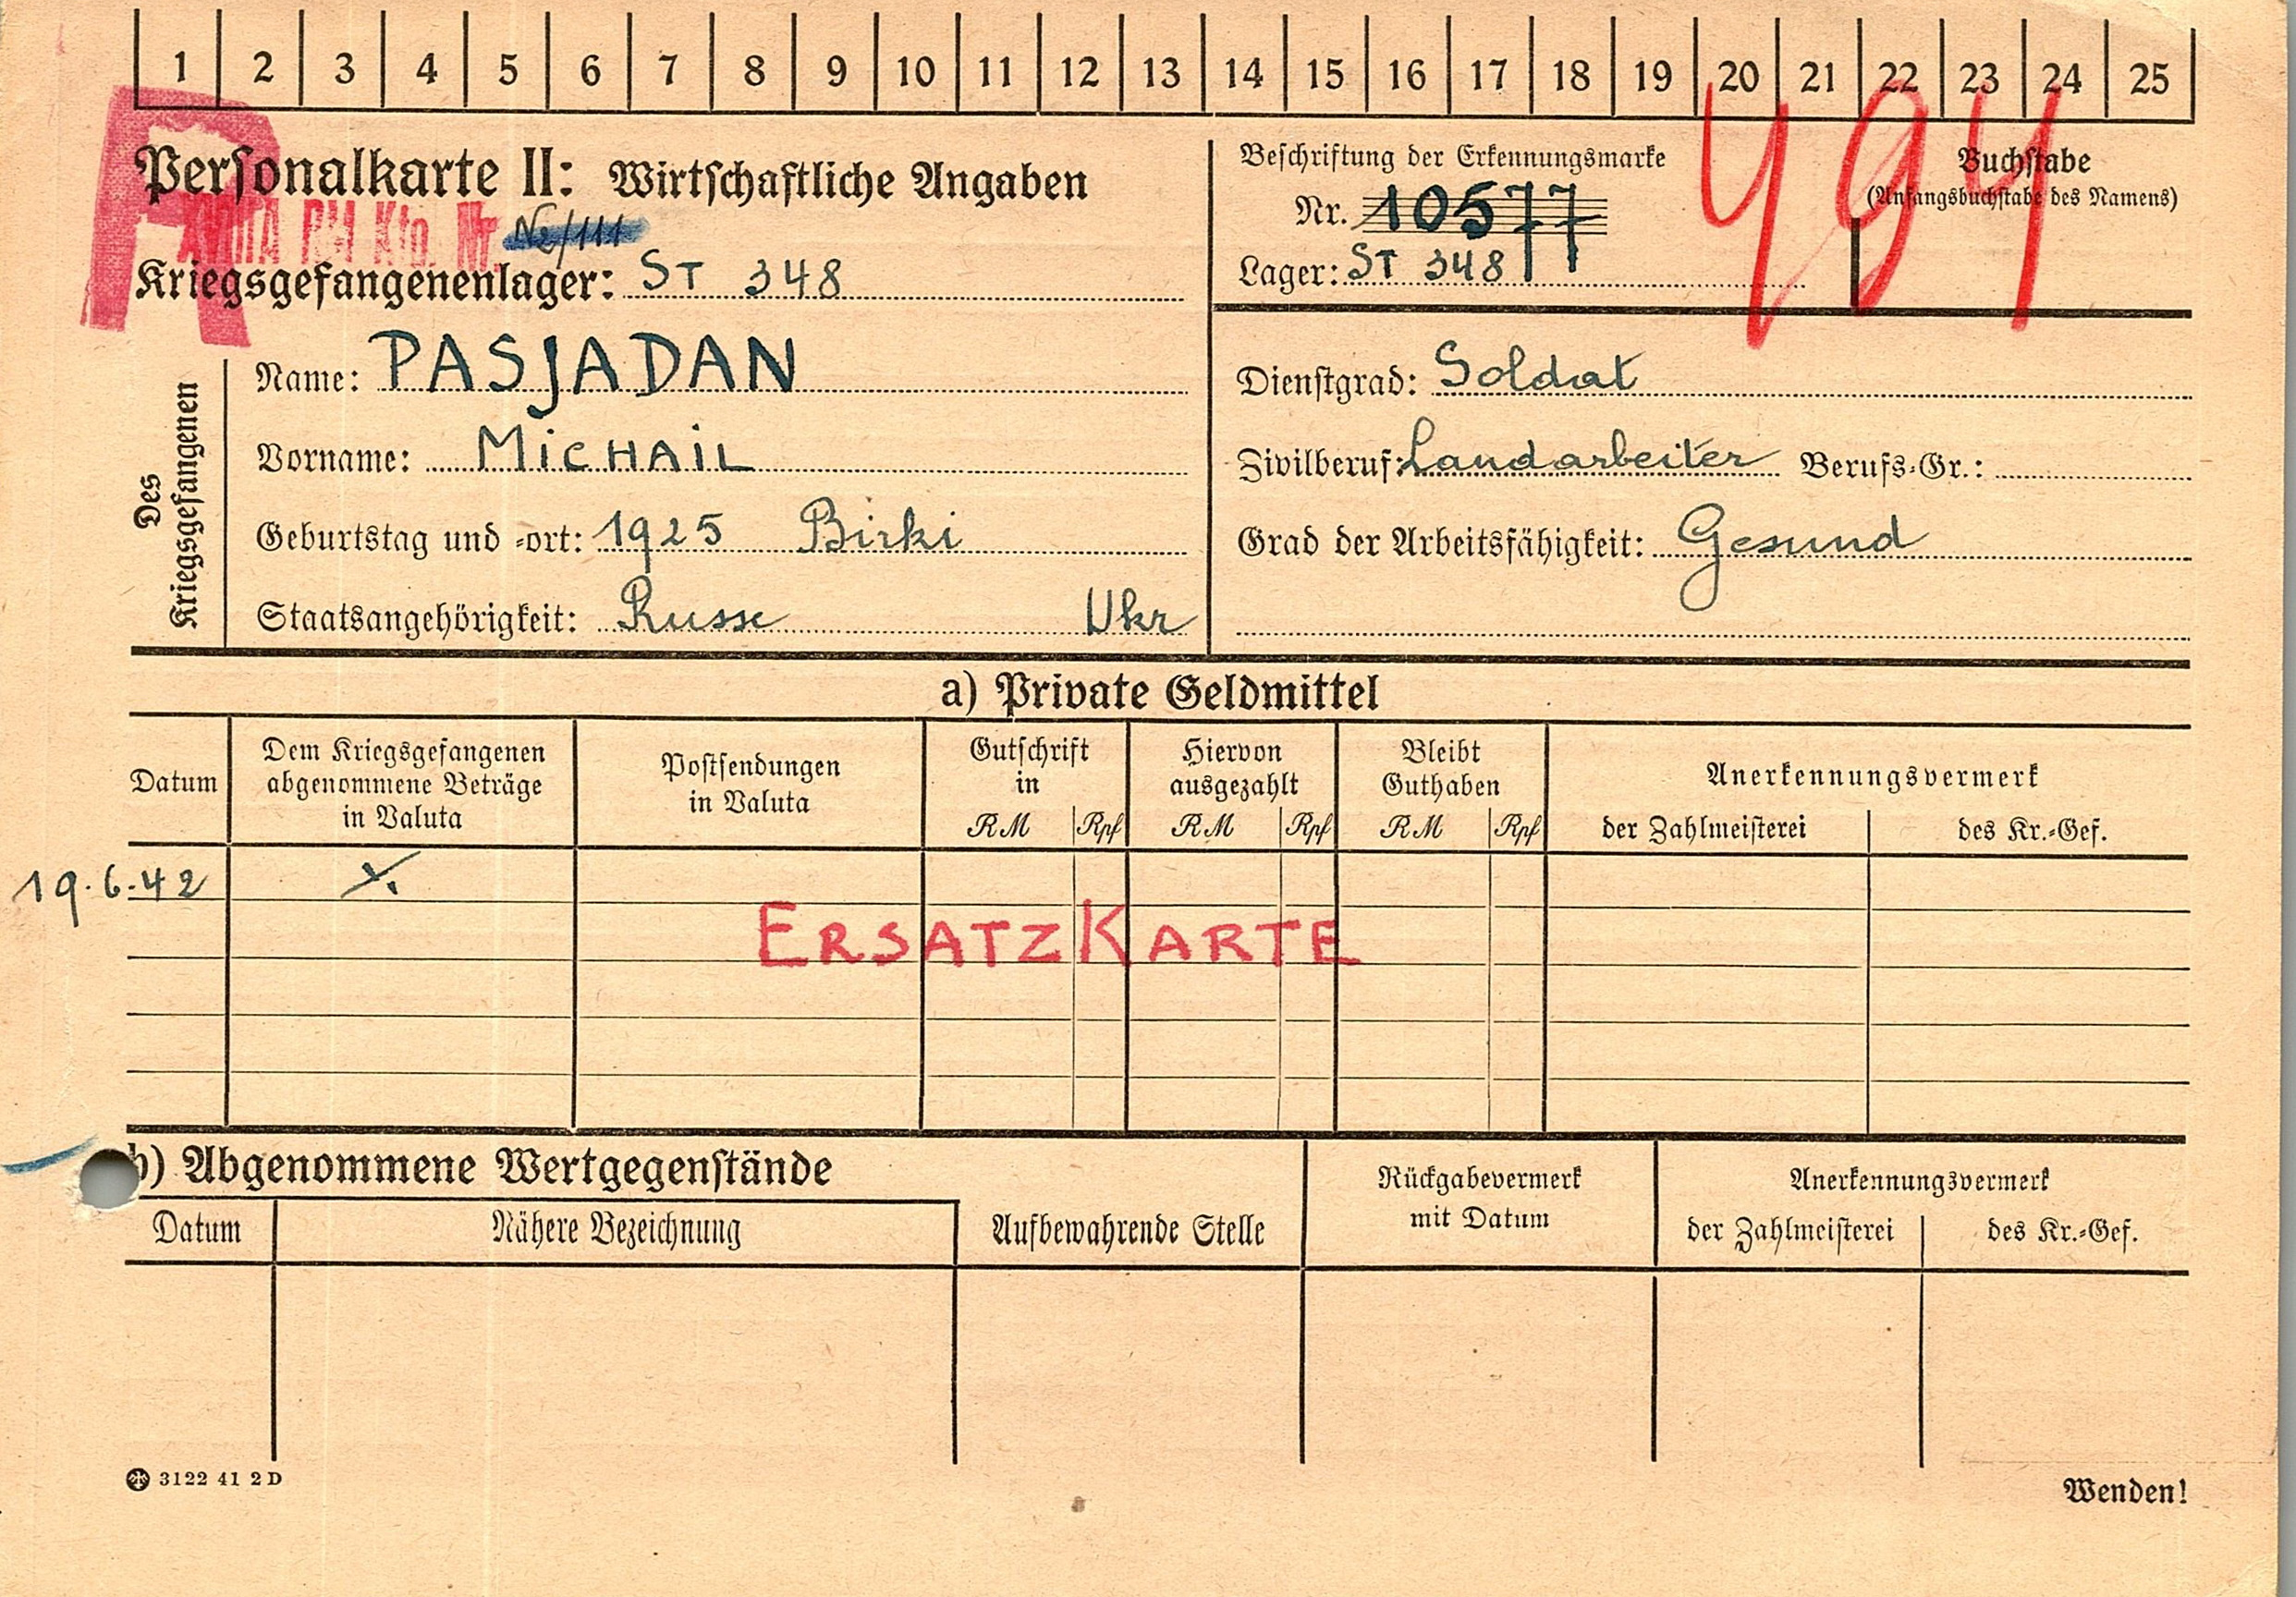 1 2 3 4 5 6 7 8 9 10 11 12 13 14 15 16 17 18 19 20 21 22 23 24 25
R
Personalkarte II: Wirtschaftliche Angaben
Kto. Nr.
Kriegsgefangenenlager: ST 348
Beschriftung der Erkennungsmarke
Nr. 10577
Lager: ST 348
Buchstabe
(Anfangsbuchstabe des Namens)
Des Kriegsgefangenen
Name: PASJADAN
Vorname: MiCHAiL
Geburtstag und -ort: 1925 Birki
Staatsangehörigkeit: Russe Ukr
Dienstgrad: Soldat
Zivilberuf: Landarbeiter Berufs-Gr.:
Grad der Arbeitsfähigkeit: Gesund
a) Private Geldmittel
Datum
Dem Kriegsgefangenen abgenommene Beträge in Valuta
Postsendungen in Valuta
Gutschrift in RM Rpf
Hiervon ausgezahlt RM Rpf
Bleibt Guthaben RM Rpf
Anerkennungsvermerk
der Zahlmeisterei des Kr.-Gef.
19.6.42
ERSATZKARTE
b) Abgenommene Wertgegenstände
Datum
Nähere Bezeichnung
Aufbewahrende Stelle
Rückgabevermerk mit Datum
Anerkennungsvermerk
der Zahlmeisterei des Kr.-Gef.
3122 41 2 D
Wenden!